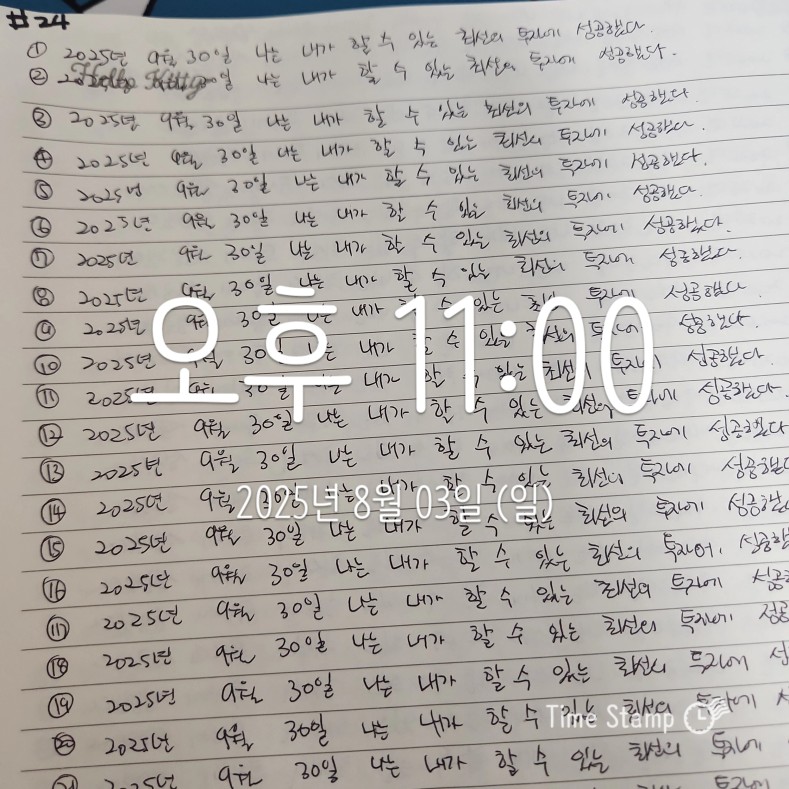 #24
① 2025년 9월 30일 나는 내가 할 수 있는 최선의 투자에 성공했다.
② 2025년 30일 나는 내가 할 수 있는 최선의 투자에 성공했다.
Hello Kitty
③ 2025년 9월 30일 나는 내가 할 수 있는 최선의 투자에 성공했다.
④ 2025년 9월 30일 나는 내가 할 수 있는 최선의 투자에 성공했다.
⑤ 2025년 9월 30일 나는 내가 할 수 있는 최선의 투자에 성공했다.
⑥ 2025년 9월 30일 나는 내가 할 수 있는 최선의 투자에 성공했다.
⑦ 2025년 9월 30일 나는 내가 할 수 있는 최선의 투자에 성공했다.
⑧ 2025년 9월 30일 나는 내가 할 수 있는 최선의 투자에 성공했다.
⑨ 2025년 9월 30일 나는 내가 할 수 있는 최선 투자에 성공했다.
오후 11:00
⑩ 2025년 9월 30일 나는 내가 할 수 있는 최선의 투자에 성공했다.
⑪ 2025년 9월 30일 나는 내가 할 수 있는 최선의 투자에 성공했다.
⑫ 2025년 9월 30일 나는 내가 할 수 있는 최선의 투자에 성공했다.
⑬ 2025년 9월 30일 나는 내가 할 수 있는 최선의 투자에 성공했다
⑭ 2025년 9월 30일 나는 내가 할 수 있는 최선의 투자에 성공했다
2025년 8월 03일 (일)
⑮ 2025년 9월 30일 나는 내가 할 수 있는 최선의 투자에 성공했
⑯ 2025년 9월 30일 나는 내가 할 수 있는 최선의 투자에 성공했
⑰ 2025년 9월 30일 나는 내가 할 수 있는 최선의 투자에 성공
⑱ 2025년 9월 30일 나는 내가 할 수 있는 최선의 투자에 성공
⑲ 2025년 9월 30일 나는 내가 할 수 있는 최선의 투자에 성
⑳ 2025년 9월 30일 나는 내가 할 수 있는 최선의 투자에
Time Stamp
2025년 9월 30일 나는 내가 할 수 있는 최선의 투자에